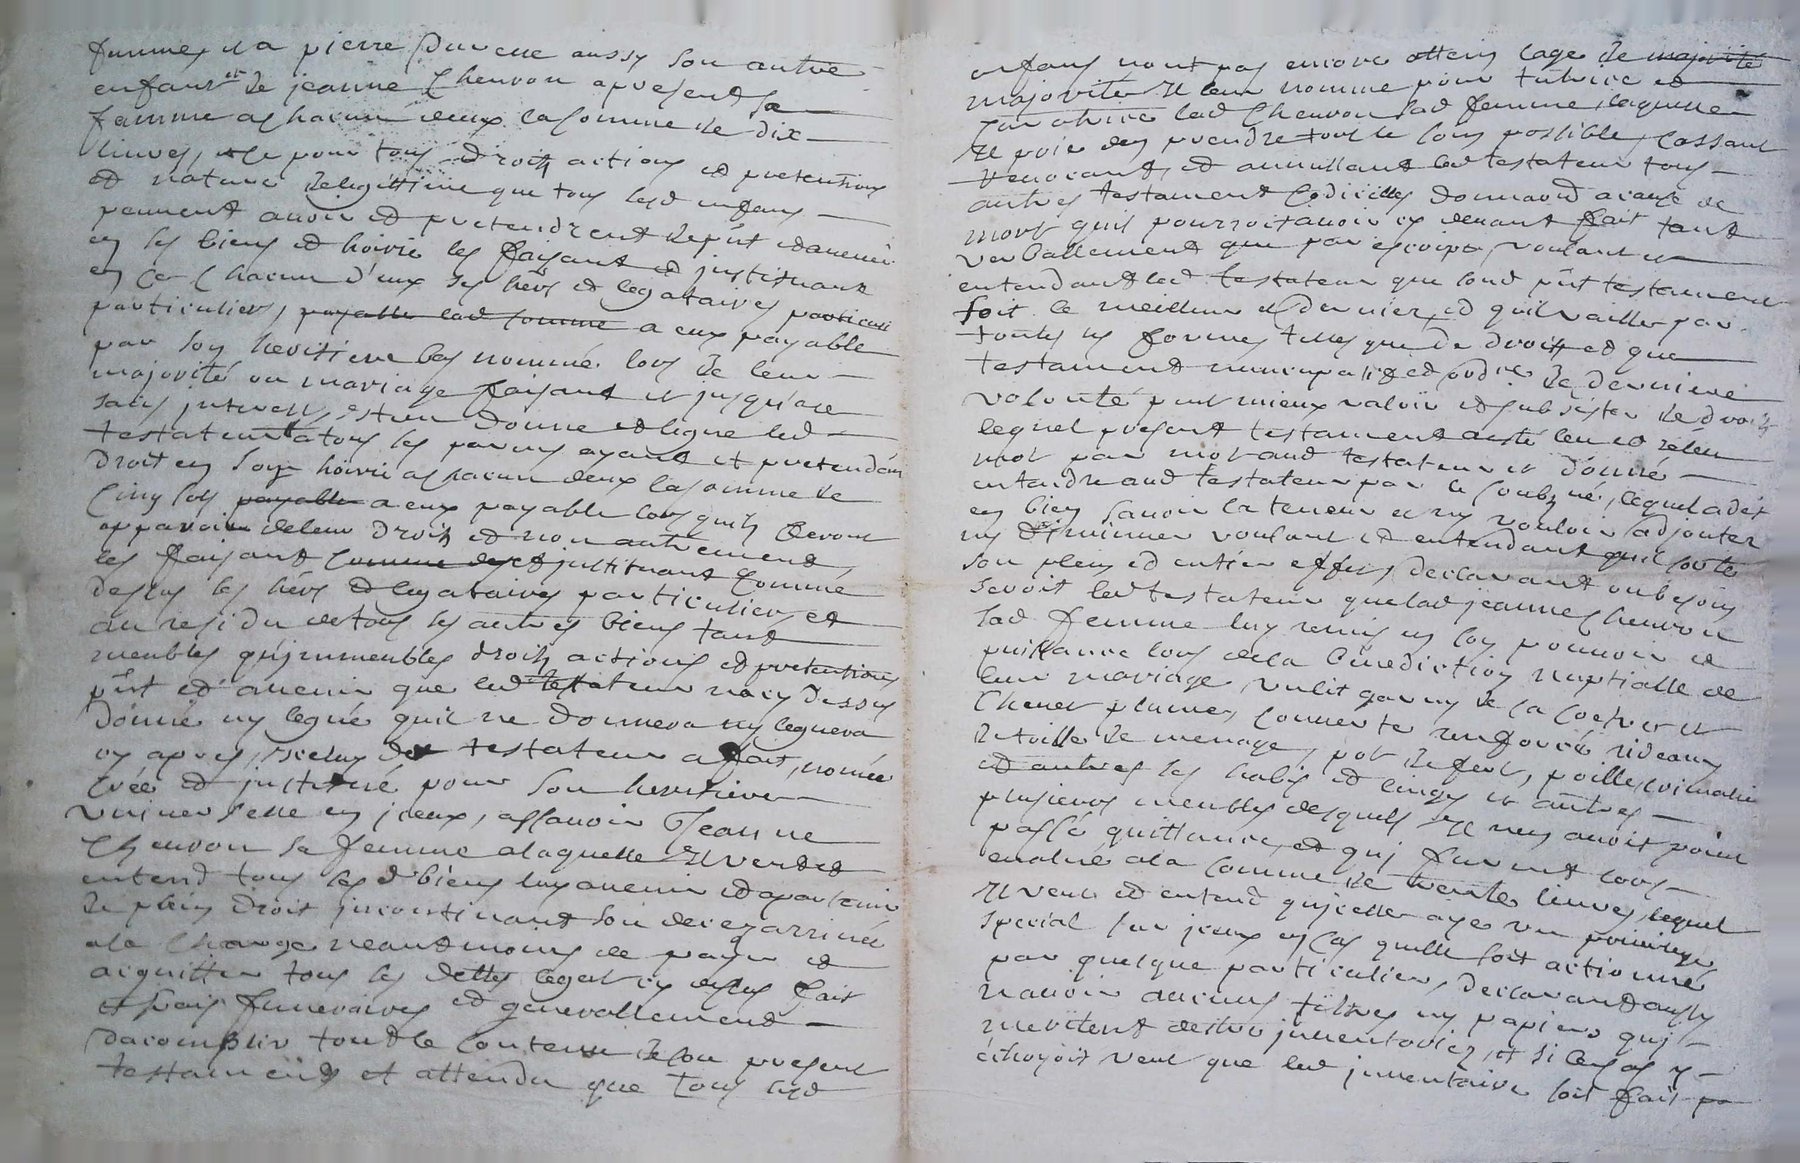 femme, et a pierre Duverne aussy son autre
enfant et de jeanne Cheuron apresent sa
femme a chacun deux la somme de dix
livres, et ce pour tous droits actions et pretentions
et nature de legittime que tous lesd enfans
peuvent avoir et pretendre et de pnt et davenir
en ses biens et hoirie les faisant et justituant
en ce chacun d'eux ses hers et legataires particu
particuliers, payable lad somme a eux payable
par son heritiere bas nommé lors de leur
majorité ou mariage faisant et jusqu'a ce
sans jnterests, et Donne et legue led
testateur a tous les parens ayant et pretendant
droit en son hoirie a chacun deux la somme de
cinq sols payable a eux payable lors quils devront
apparoir de leur droits et non autrement,
les faisant comme des et justituant comme
dessus ses hers et legataires particuliers, et
au residu de tous ses autres biens tant
meubles qu'jmmeubles droits actions et pretentions
pnt et d'avenir que led testateur na cy dessus
donné ny legué qu'il ne donnera ny leguera
cy apres, icelui testateur a fait, nomée
créé et justitué pour son heritiere
universelle en jceux, assavoir Jeanne
Cheuron sa femme a laquelle Il veut et
entend tous lesd biens luy avenir et apartenir
de plein droit jncontinant son decez arrivée
a la charge neantmoins de payer et
acquitter tous les dettes legat cy dessus fait
et frais funeraires et generallement
daccomplir tout le contenu de son present
testament et attendu que tous lesd
enfans nont pas encore atteins lage de majorité
majorité Il leur nomme pour tutrice et
curatrice lad Cheuron sad femme, laquelle
Il prie den prendre tout le soin possible, Cassant
revocant, et annullant led testateur tous
autres testament codicilles donnaõn a cause de
mort quil pourroit avoir cy devant fait tant
verballement que par escript, voulant et
entendant led testateur que sond pnt testament
soit le meilleur et dernier, et quil vaille par
toutes les formes telles que de droit et que
testament nuncupatif et ordre de derniere
volonté peut mieux valoir et subsister de droit
lequel present testament a esté leu et releu
mot par mot aud testateur et donné
entendre aud testateur par le soubzné, lequel a dit
en bien savoir la teneur et ny vouloir adjouter
ny diminuer voulant et entendant quil sorte
son plein et entier effet, declarant au besoin
seroit led testateur que lad jeanne Cheuron
sad femme luy remis en son pouvoir et
puissance lors de la benediction nuptialle de
leur mariage, un lit garny de sa
Chevet plumes, couverte rideaux
de toille de menage, pot de fert, poille, crimalie
et autres ses habis et linges et autres
plusieurs meubles desquels Il ne en avoit point
passé quittance, et quj furent lors
evalué a la somme de trente livres, lequel
Il veut et entend qujcelle aye un privilege
special sur jceux en cas quelle soit actionné
par quelque particulier, declarant aussy
navoir aucuns titres ny papiers quj
meritent destre jnventoriez, et si le cas y
echeyoit veut que led jnventaire soit fait